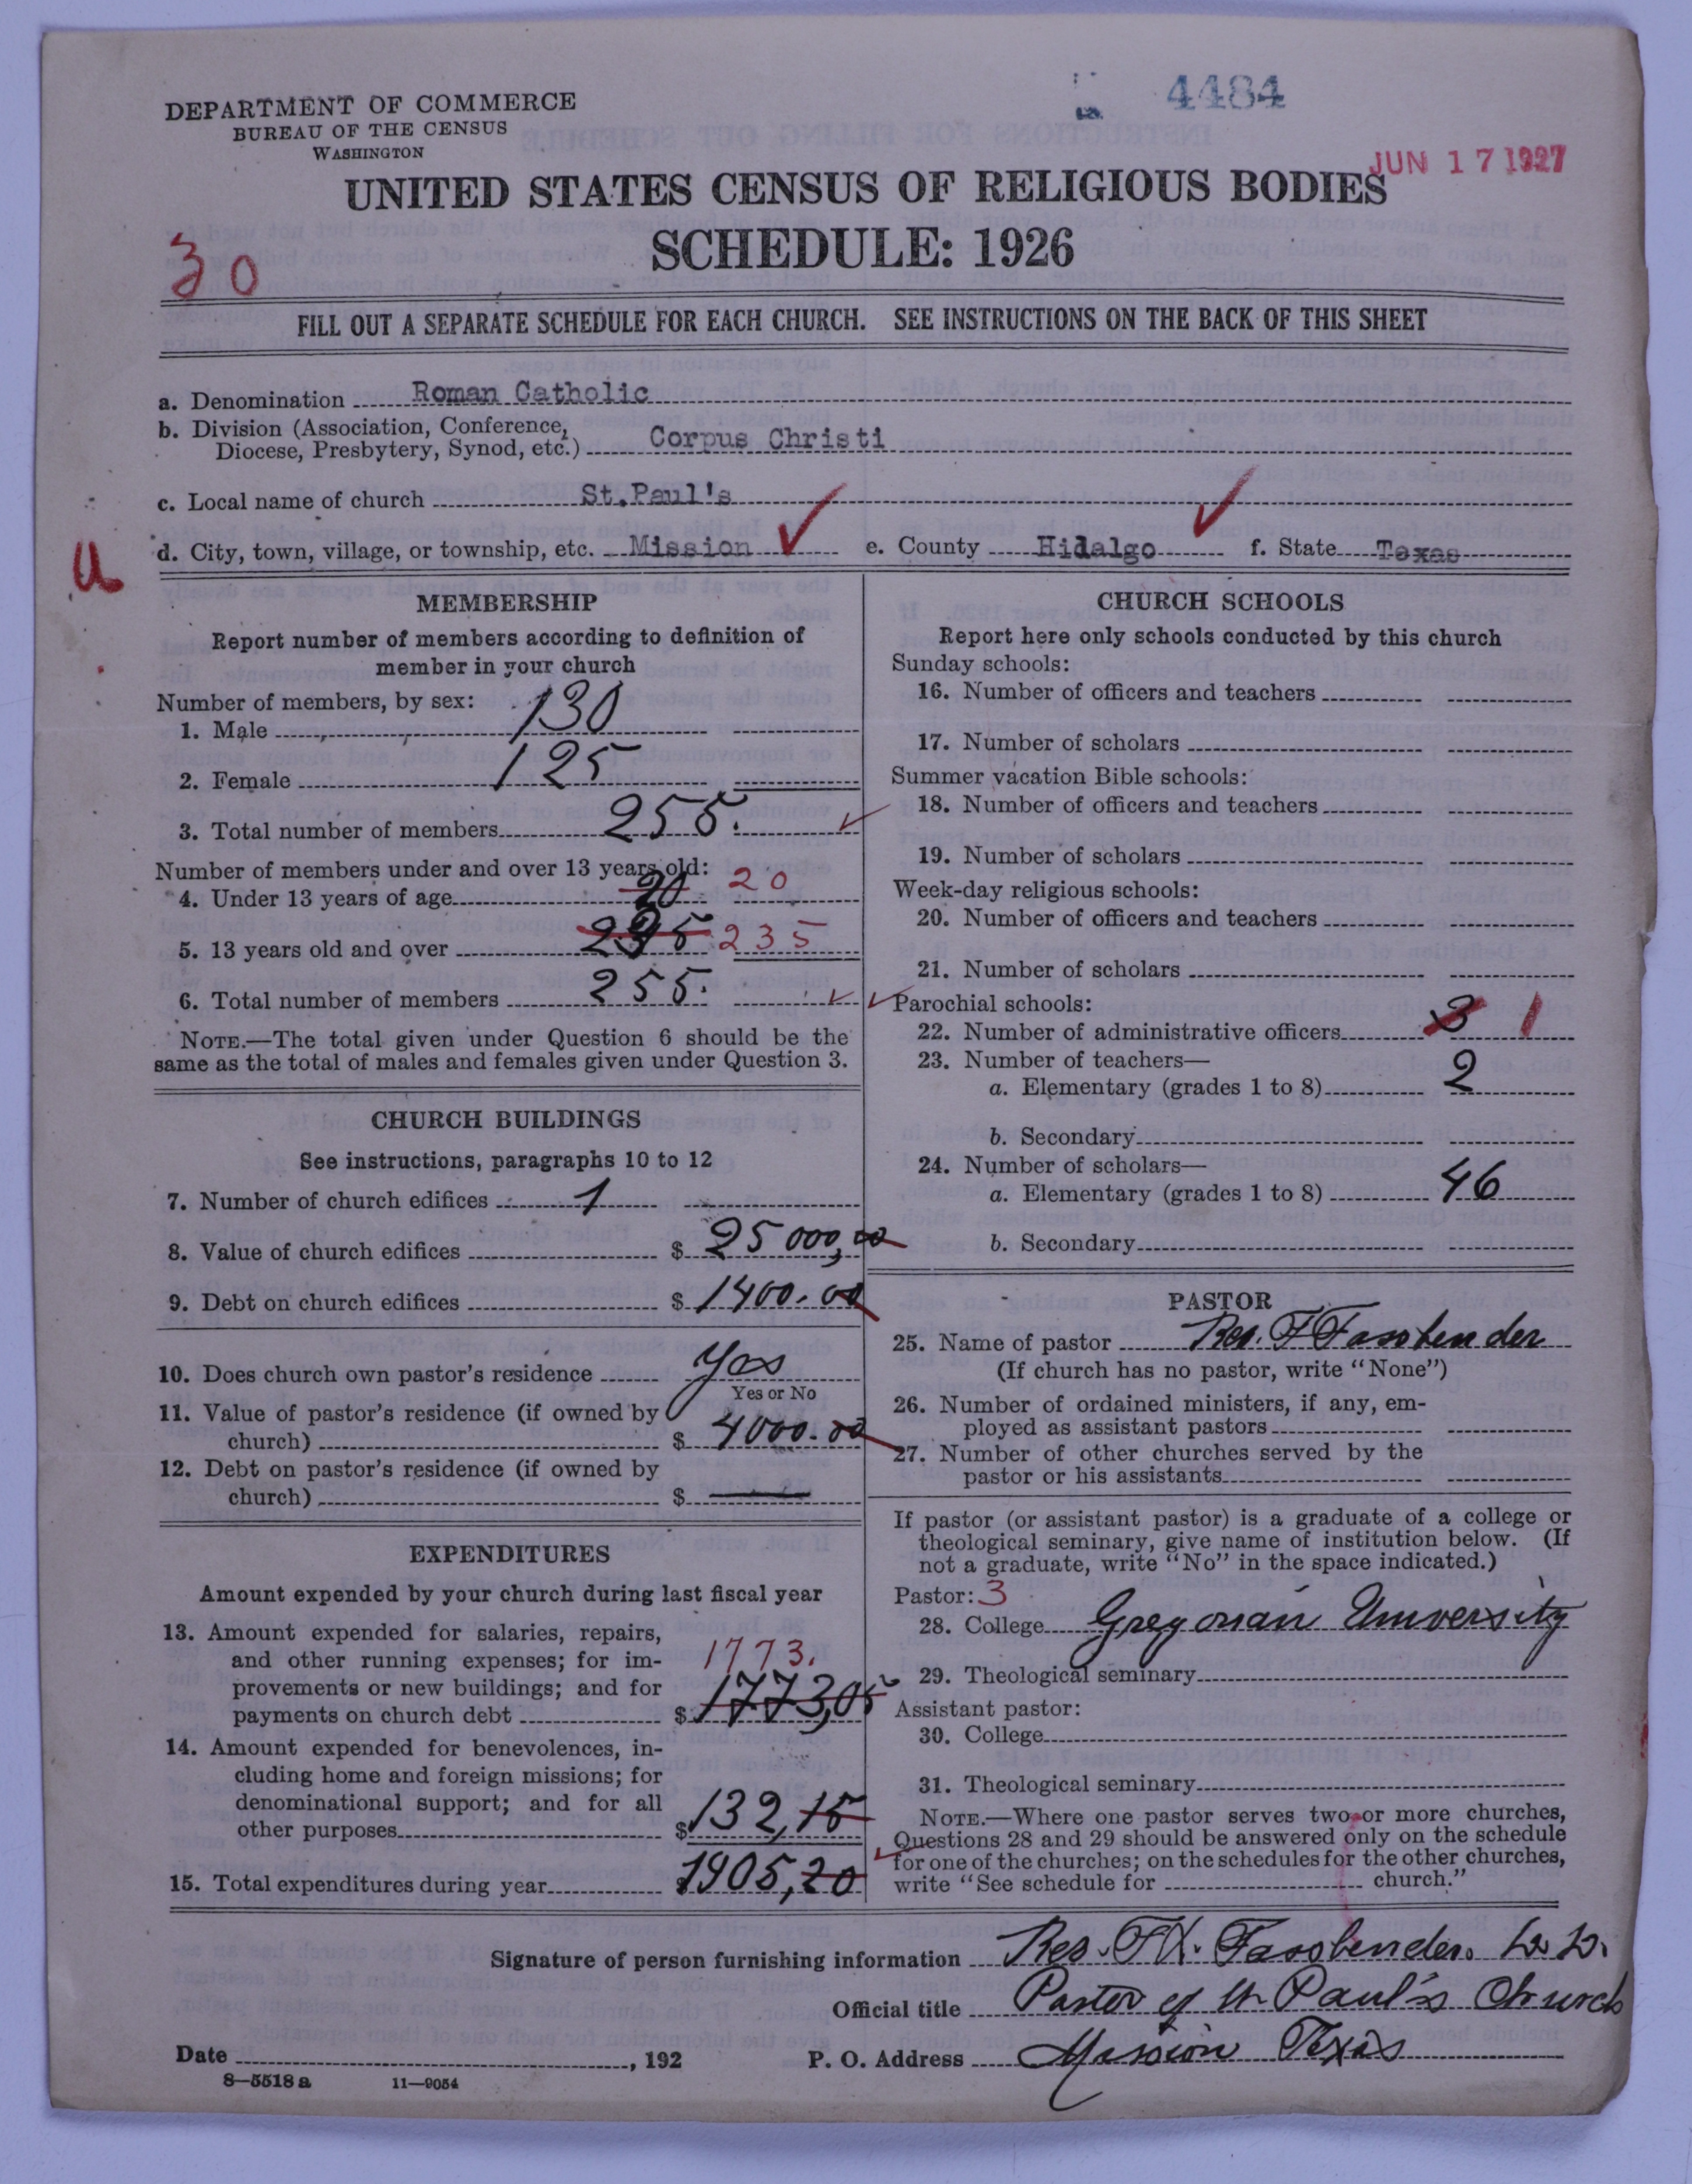 4484
DEPARTMENT OF COMMERCE
BUREAU OF THE CENSUS
WASHINGTON
JUN 17 1927
UNITED STATES CENSUS OF RELIGIOUS BODIES
SCHEDULE: 1926
30
FILL OUT A SEPARATE SCHEDULE FOR EACH CHURCH. SEE INSTRUCTIONS ON THE BACK OF THIS SHEET
a. Denomination Roman Catholic
b. Division (Association, Conference,
Diocese, Presbytery, Synod, etc.) Corpus Christi
c. Local name of church St.Paul's
d. City, town, village, or township, etc. Mission e. County Hidalgo f. State Texas
MEMBERSHIP
Report number of members according to definition of
member in your church
Number of members, by sex:
1. Male 130
2. Female 125
3. Total number of members 255.
Number of members under and over 13 years old:
4. Under 13 years of age 20 20
5. 13 years old and over 235 235
6. Total number of members 255.
NOTE.—The total given under Question 6 should be the
same as the total of males and females given under Question 3.
CHURCH BUILDINGS
See instructions, paragraphs 10 to 12
7. Number of church edifices 1
8. Value of church edifices $ 25 000,00
9. Debt on church edifices $ 1400.00
10. Does church own pastor's residence Yes
Yes or No
11. Value of pastor's residence (if owned by
church) $ 4000.00
12. Debt on pastor's residence (if owned by
church) $
EXPENDITURES
Amount expended by your church during last fiscal year
13. Amount expended for salaries, repairs,
and other running expenses; for im-
provements or new buildings; and for
payments on church debt $ 1773,05
1773.
14. Amount expended for benevolences, in-
cluding home and foreign missions; for
denominational support; and for all
other purposes $ 132,15
15. Total expenditures during year $ 1905,20
CHURCH SCHOOLS
Report here only schools conducted by this church
Sunday schools:
16. Number of officers and teachers
17. Number of scholars
Summer vacation Bible schools:
18. Number of officers and teachers
19. Number of scholars
Week-day religious schools:
20. Number of officers and teachers
21. Number of scholars
Parochial schools:
22. Number of administrative officers 3 1
23. Number of teachers—
a. Elementary (grades 1 to 8) 2
b. Secondary
24. Number of scholars—
a. Elementary (grades 1 to 8) 46
b. Secondary
PASTOR
25. Name of pastor Rev. F Fassbender
(If church has no pastor, write "None")
26. Number of ordained ministers, if any, em-
ployed as assistant pastors
27. Number of other churches served by the
pastor or his assistants
If pastor (or assistant pastor) is a graduate of a college or
theological seminary, give name of institution below. (If
not a graduate, write "No" in the space indicated.)
Pastor: 3
28. College Gregorian University
29. Theological seminary
Assistant pastor:
30. College
31. Theological seminary
NOTE.—Where one pastor serves two or more churches,
Questions 28 and 29 should be answered only on the schedule
for one of the churches; on the schedules for the other churches,
write "See schedule for church."
Signature of person furnishing information Rev. F.X. Fassbender.
Official title Pastor of St Paul's Church
Date , 192 P. O. Address Mission Texas
8—5518 a 11—9054